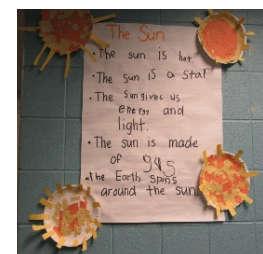 The Sun
• The sun is hot.
• The sun is a star
• The sun gives us
energy and
light.
• The sun is made
of gas
• the Earth spins
around the sun